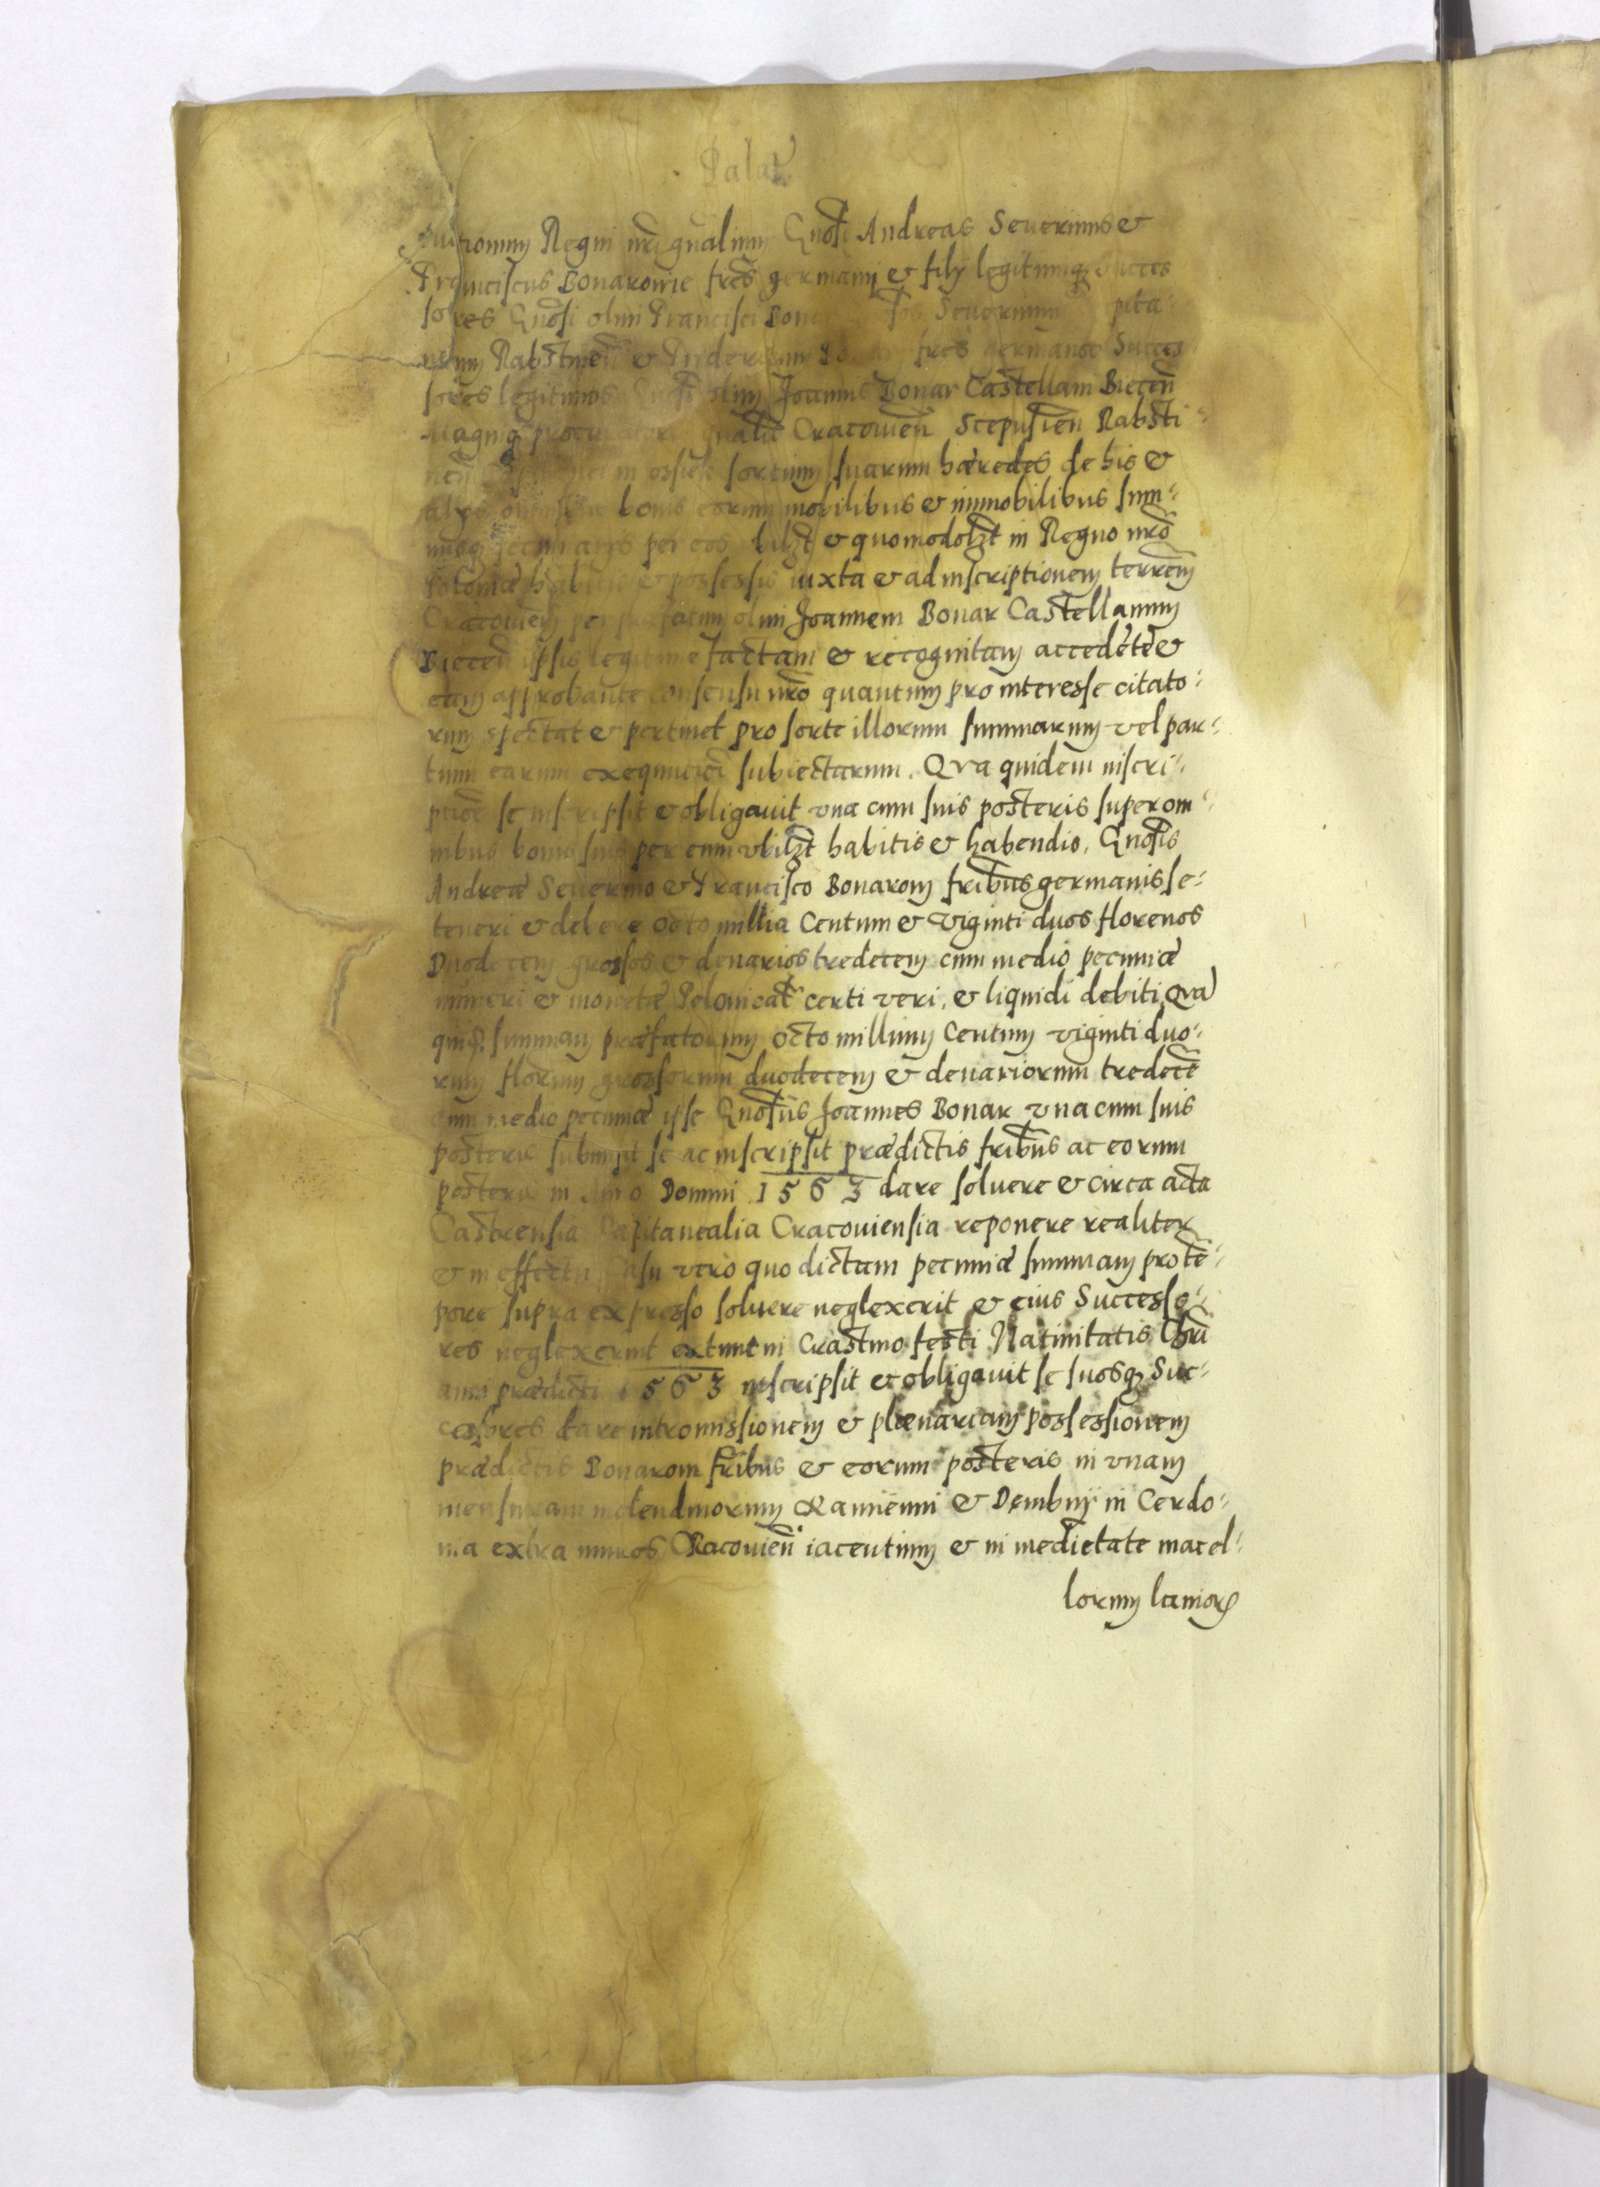 Palat
Regni nri gnalium Gnosi Andreas Severinus &
Franciscus Bonarowie fres germani & filij legitimiq succes
sores Gnosi olim Francisci Bonar Severinum pita-
neum Rabstinen & Fridericum fres germanos Succes
sores legitimos Gnosi olim Joannis Bonar Castellani Biecen
Magniq procuratoris gnalis Cracouien Scepusien Rabsti-
nen sortium suarum hæredes de his &
alijs omnibus bonis eorum mobilibus & immobilibus sum-
misq pecuniarijs per eos libzt & quomodolzt in Regno nro
Poloniæ habitis & possessis iuxta & ad inscriptionem terrem
Cracouien per præfatum olim Joannem Bonar Castellanum
Biecen ipsis legitime factam & recognitam accedete &
eam approbante consensu nro quantum pro interesse citato-
rum spectat & pertinet pro sorte illorum summarum vel par-
tium earum subiectarum. Qva quidem inscri-
ptioe se inscripsit & obligauit vna cum suis posteris super om-
nibus bonis suis per eum vbilzt habitis & habendis, Gnosis
Andreæ Severino & Francisco Bonarom fribus germanis se-
teneri & debere octo millia Centum & Viginti duos florenos
Duodecem grossos & denarios tredecem cum medio pecuniæ
numeri & monetæ Polonicat certi veri, & liquidi debiti, Qva
quid. summam præfatorum octo millium Centum viginti duo-
rum florium grossorum duodecem & denariorum tredece
cum medio pecuniæ ipse Gnosus Joannes Bonar vna cum suis
posteris submisit se ac inscripsit prædictis fribus ac eorum
posteris in Anno Domini 1563 dare soluere & circa acta
Castrensia Capitanealia Cracouiensia reponere realiter
& in effectu Casu vero quo dictam pecuniæ summam pro te-
pore supra expresso soluere neglexerit & eius Successo-
res neglexerint extunc in Crastino festi Natiuitatis Chri
anni prædicti 1563 inscripsit & obligauit se suosq Suc-
cessores dare intromissionem & plænariam possessionem
prædictis Bonarom fribus & eorum posteris in vnam
mensuram molendinorum Kamienni & Dembnij in Cerdo-
nia extra muros Cracouien iacentium & in medietate macel-
lorum lanior